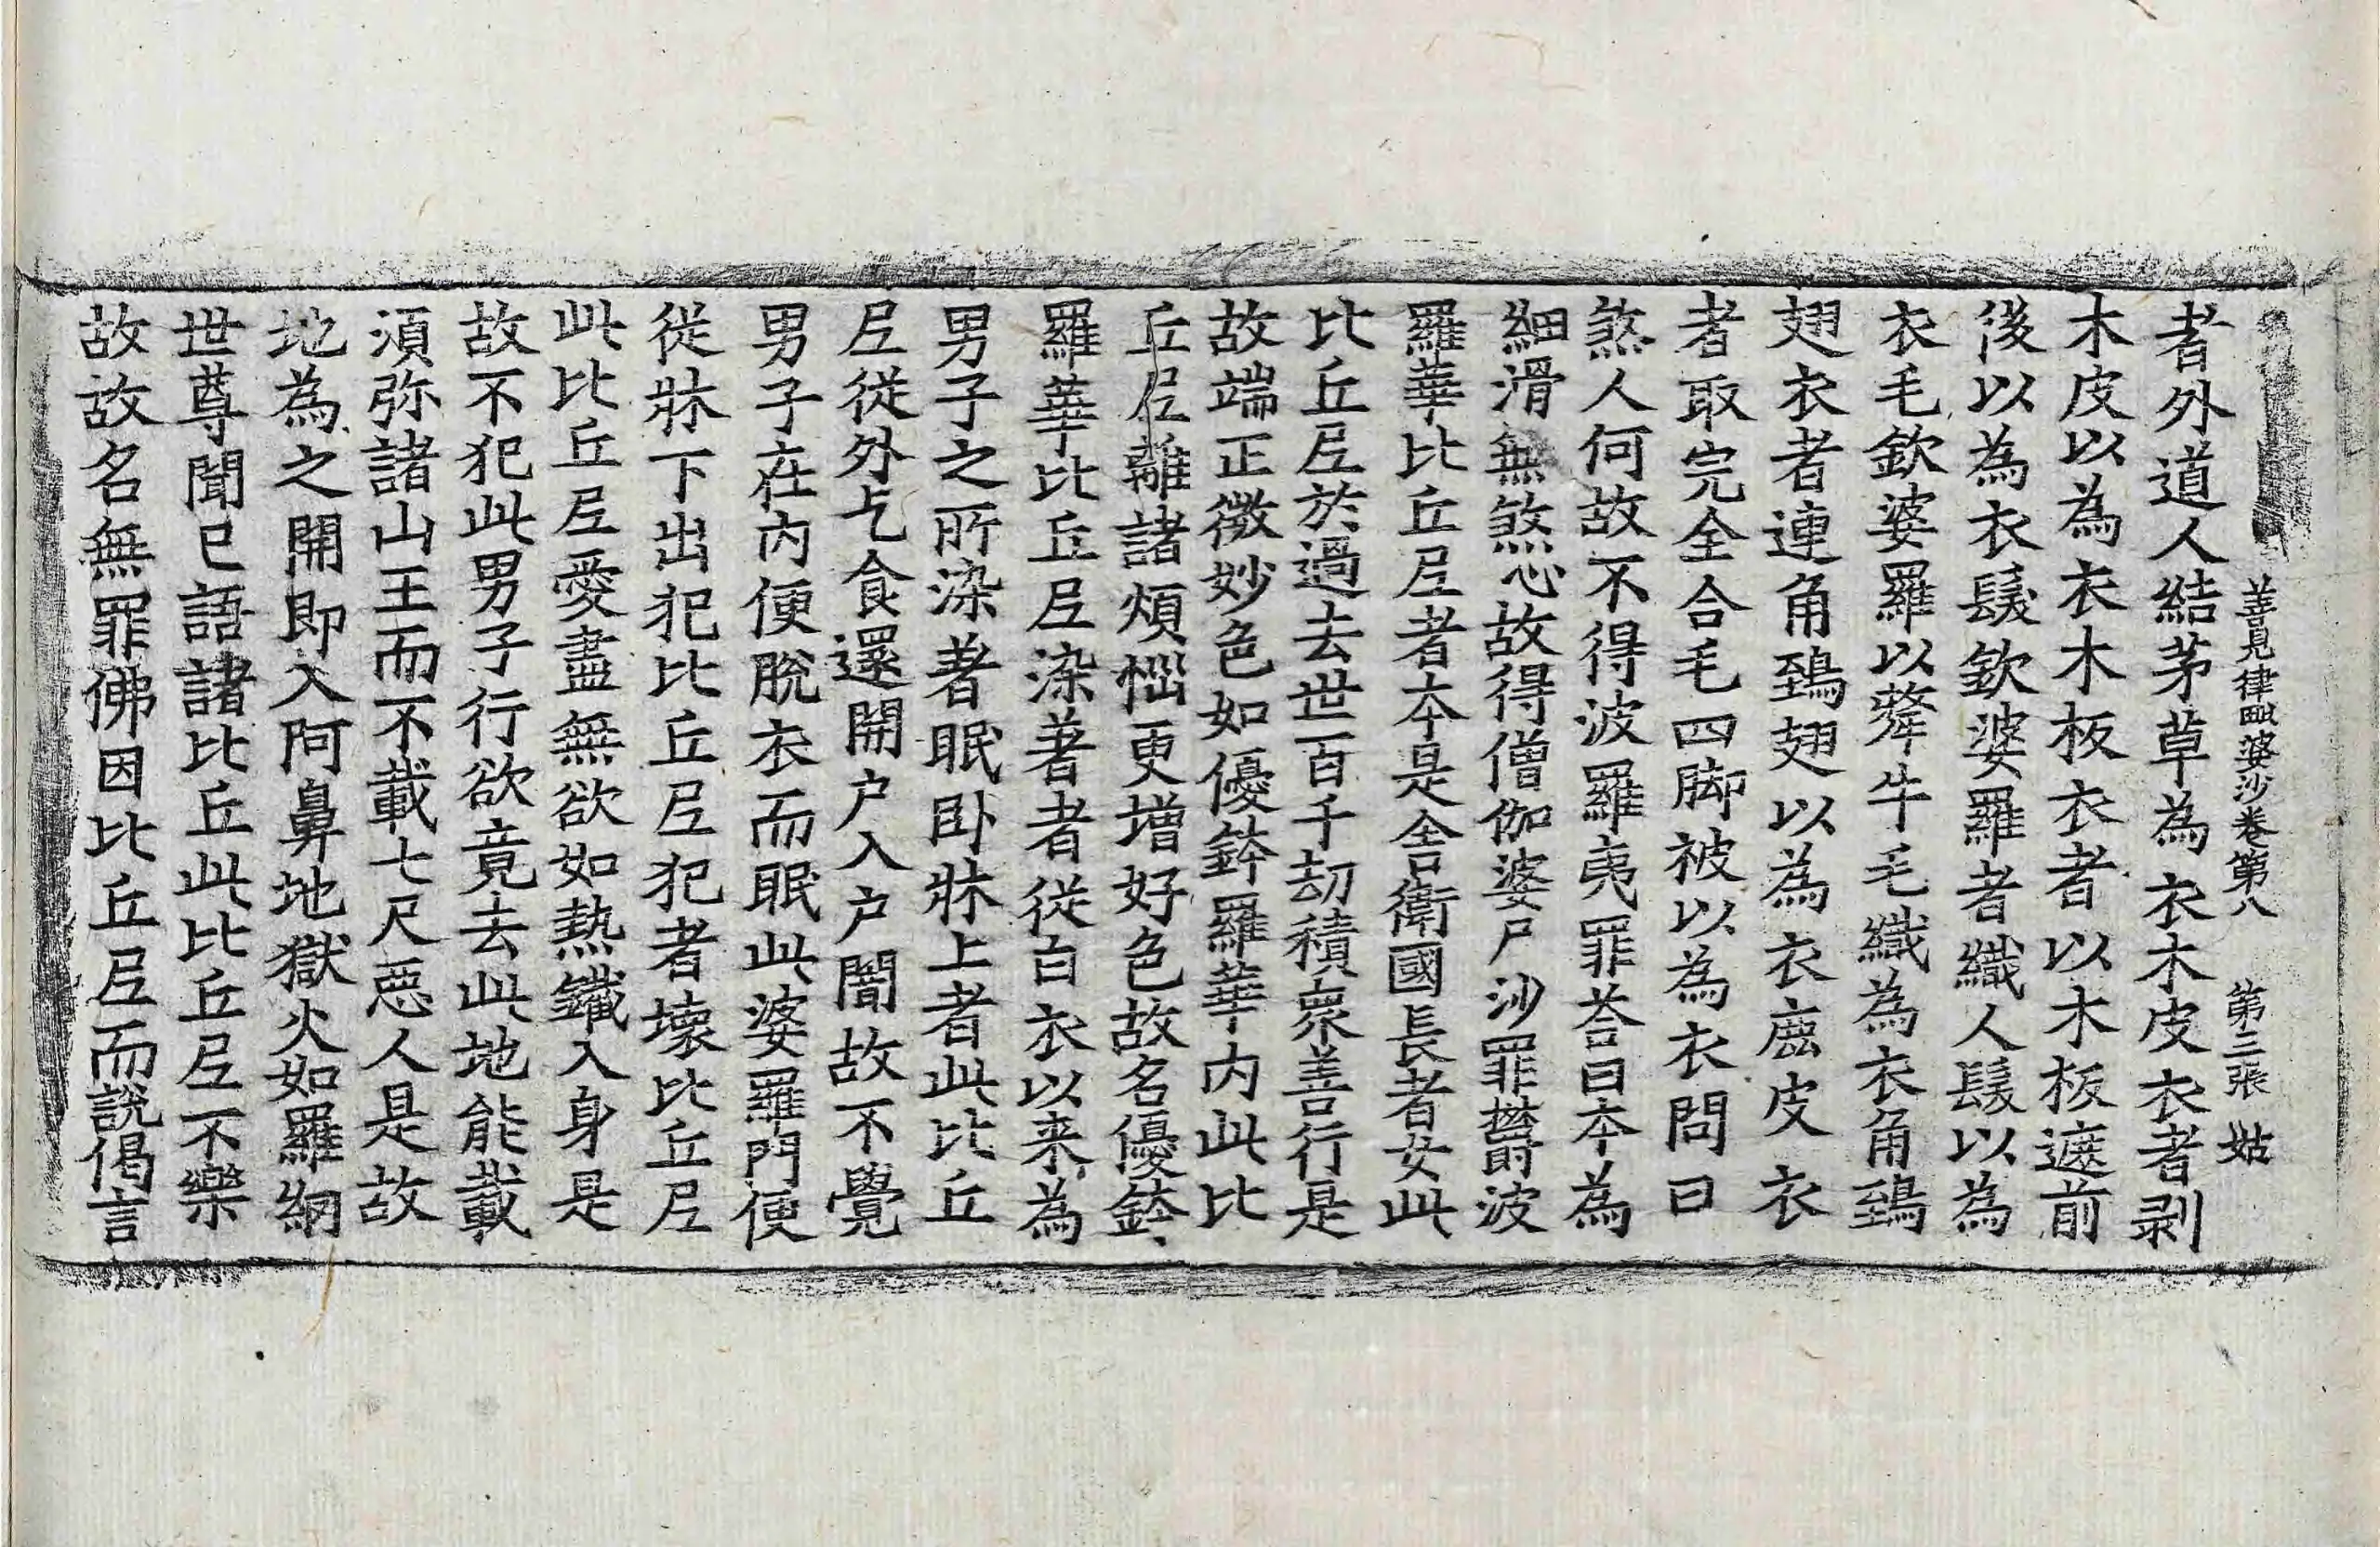 善見律毗婆沙卷第八　第三張　姑
者外道人結茅草為衣木皮衣者剥
木皮以為衣木板衣者以木板遮前
後以為衣髮欽婆羅者織人髮以為
衣毛欽婆羅以犛牛毛織為衣角鵄
翅衣者連角鵄翅以為衣鹿皮衣
者取完全合毛四脚被以為衣問曰
煞人何故不得波羅夷罪荅曰本為
細滑無煞心故得僧伽婆尸沙罪欝波
羅華比丘尼者本是舍衛國長者女此
比丘尼於過去世百千劫積衆善行是
故端正微妙色如優鉢羅華內此比
丘尼離諸煩惱更增好色故名優鉢
羅華比丘尼染著者從白衣以来為
男子之所染著眠卧牀上者此比丘
尼從外乞食還開户入户闇故不覺
男子在內便脫衣而眠此婆羅門便
從牀下出犯比丘尼犯者壞比丘尼
此比丘尼愛盡無欲如熱鐵入身是
故不犯此男子行欲竟去此地能載
須弥諸山王而不載七尺惡人是故
地為之開即入阿鼻地獄火如羅網
世尊聞已語諸比丘此比丘尼不樂
故故名無罪佛因比丘尼而說偈言